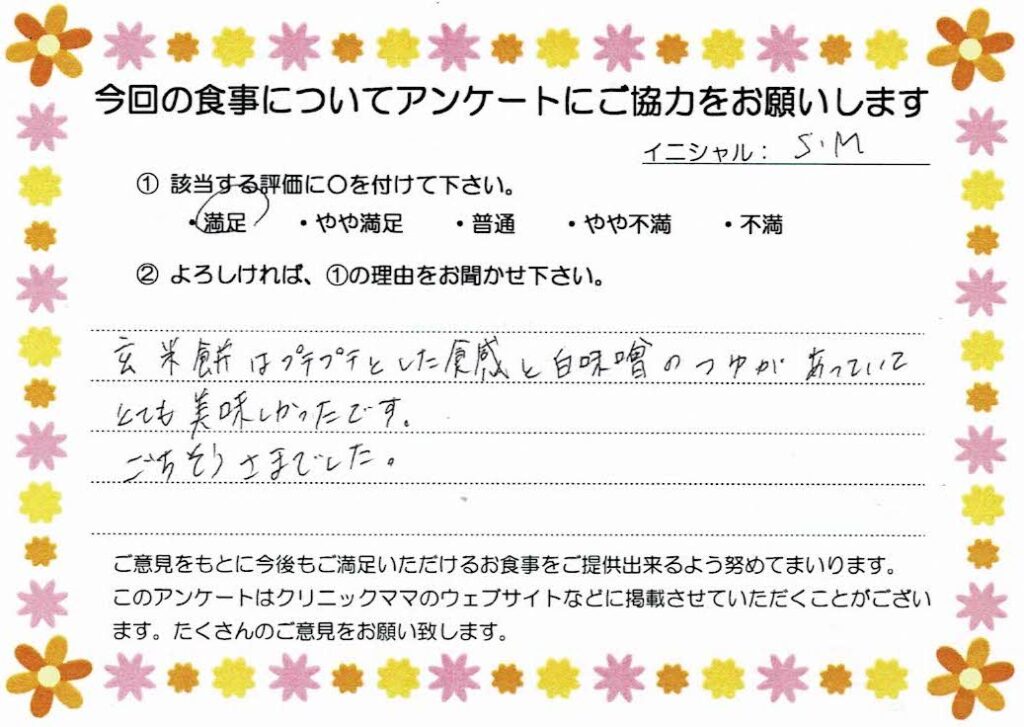 今回の食事についてアンケートにご協力をお願いします
イニシャル： S.M
① 該当する評価に〇を付けて下さい。
・満足 ・やや満足 ・普通 ・やや不満 ・不満
② よろしければ、①の理由をお聞かせ下さい。
玄米餅はプチプチとした食感と白味噌のつゆがあっていて
とても美味しかったです。
ごちそうさまでした。
ご意見をもとに今後もご満足いただけるお食事をご提供出来るよう努めてまいります。
このアンケートはクリニックママのウェブサイトなどに掲載させていただくことがござい
ます。たくさんのご意見をお願い致します。